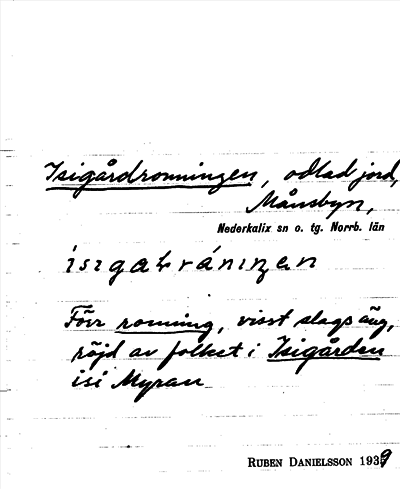 Isigårdronningen, odlad jord,
Månsbyn,
Nederkalix sn o. tg. Norrb. län
isigaʀvȧninzen
Förr ronning, visst slags äng,
röjd av folket i Isigården
isi Myran
RUBEN DANIELSSON 1939